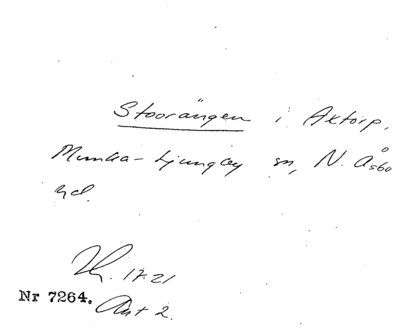 Stoorängen i Axtorp,
Munka-Ljungby sn, N. Åsbo
hd.
17.21
Nr 7264. Akt 2.